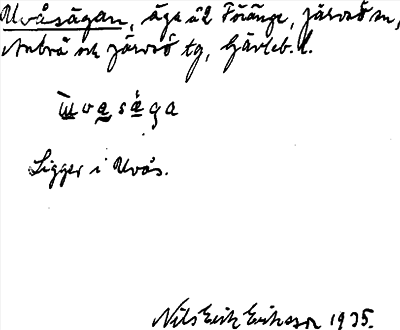 Uvåsägan, äga åt Föränge, Järvsö sn,
Arbrå och Järvsö tg, Gävleb. l.
ɯvasǡga
Ligger i Uvås.
Nils Erik Eriksson 1935.